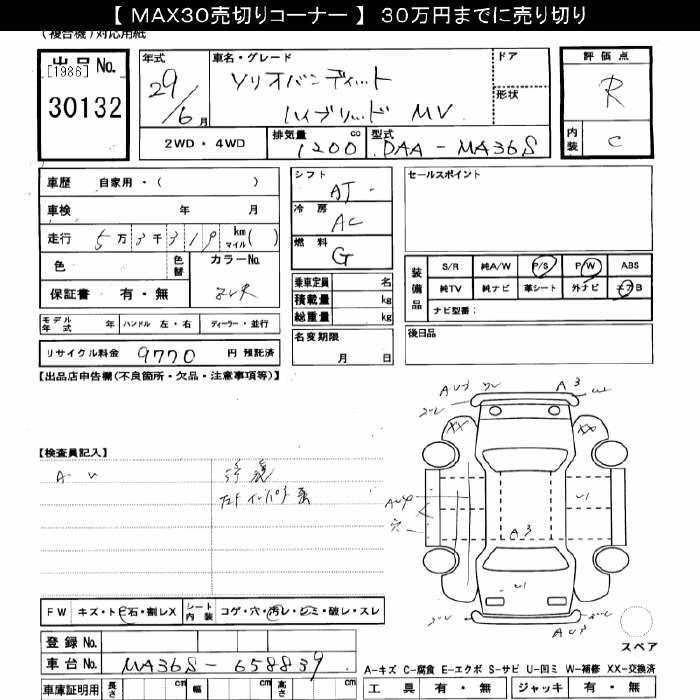 【 MAX30売切りコーナー 】 30万円までに売り切り
（複合機）対応用紙
出品No.
[1986]
30132
年式
29/6月
車名・グレード
ソリオバンディット
ハイブリッド MV
ドア
形状
評価点
R
内装
C
2WD・4WD
排気量 cc
1200
型式
DAA-MA36S
車歴 自家用・( )
車検 年 月
走行 5万3千319 km マイル ( )
色
色替
カラーNo.
ZVR
保証書 有・無
シフト
AT
冷房
AC
燃料
G
乗車定員 名
積載量 kg
総重量 kg
セールスポイント
装備品
S/R 純A/W P/S P/W ABS
純TV 純ナビ 革シート 外ナビ エアB
ナビ型番：
モデル年式 年 ハンドル 左・右 ディーラー・並行
リサイクル料金 9770 円 預託済
名変期限
月 日
後日品
【出品店申告欄(不良箇所・欠品・注意事項等)】
【検査員記入】
A U
フロントインパネ
A 3
XX
XX
U1
A 3
U1
FW キズ・トビ石・割レX
シート内装 コゲ・穴・汚レ・シミ・破レ・スレ
登録No.
車台No. MA36S-658839
スペア
A-キズ C-腐食 E-エクボ S-サビ U-凹ミ W-補修 XX-交換済
車庫証明用 長さ cm 幅 cm 高さ cm
工具 有・無 ジャッキ 有・無